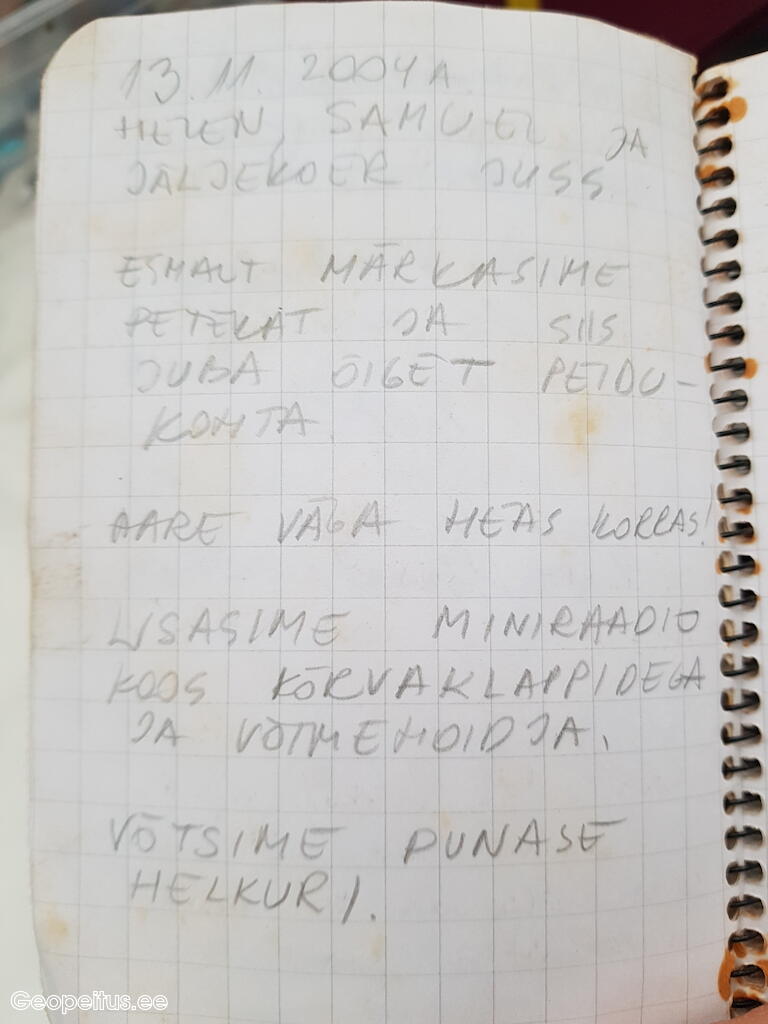 13.11. 2004 A
HELEN, SAMUEL JA
JÄLJEKOER JUSS.
ESMALT MÄRKASIME
PETEKAT JA SIIS
JUBA ÕIGET PEIDU-
KOHTA
AARE VÄGA HEAS KORRAS!
LISASIME MINIRAADIO
KOOS KÕRVAKLAPPIDEGA
JA VÕTMEHOIDJA.
VÕTSIME PUNASE
HELKURI.
Geopeitus.ee